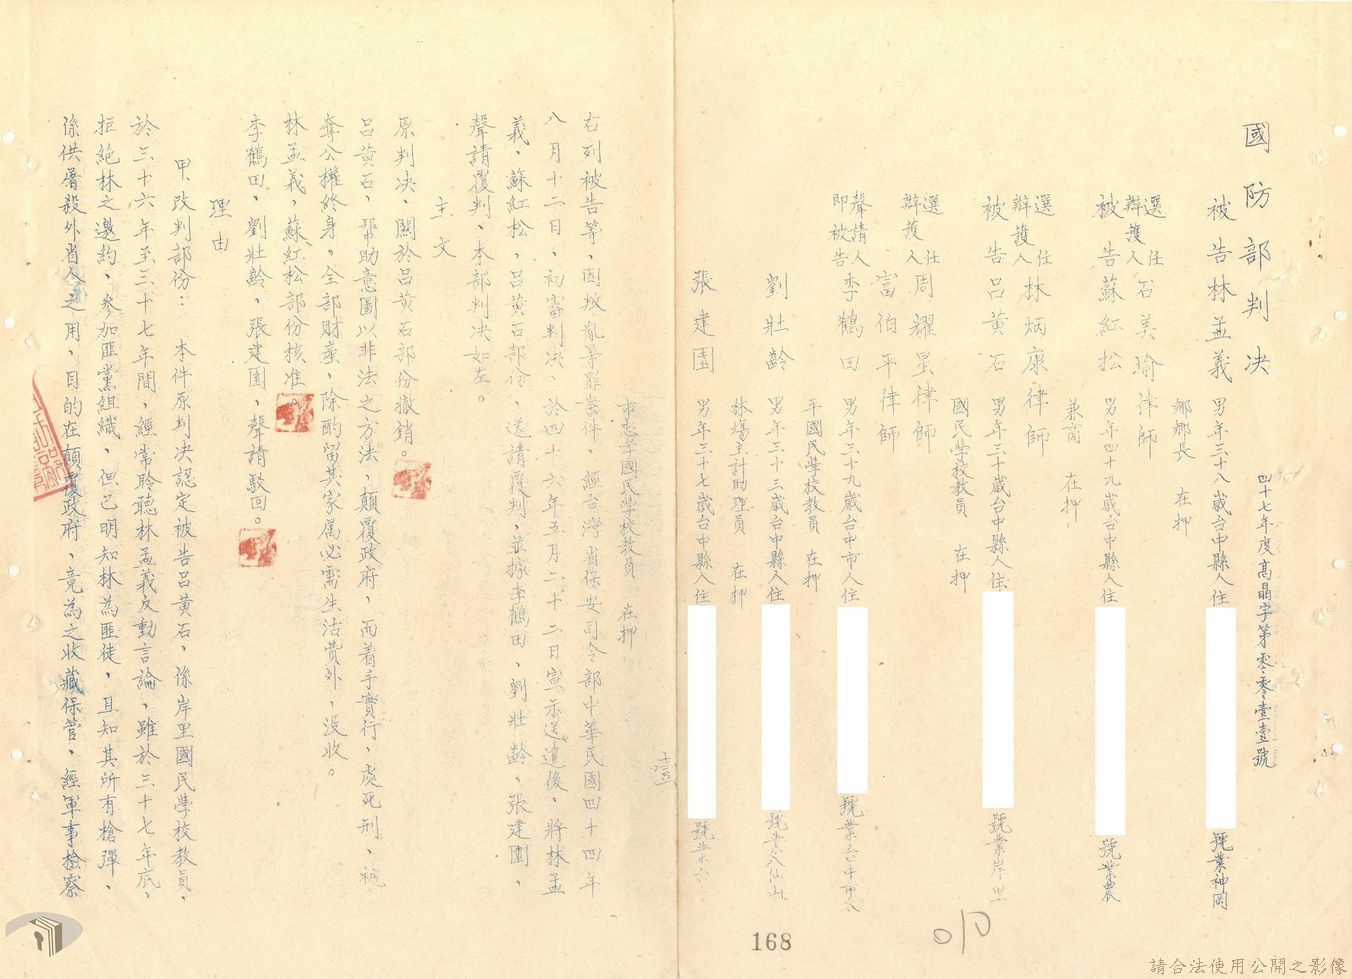 國防部判決
四十七年度高晶字第零零壹壹號
被告林孟義 男年三十八歲台中縣人住 號業神岡
鄉鄉長 在押
選任辯護人石美瑜律師
被告蘇紅松 男年四十九歲台中縣人住 號業農
兼商 在押
選任辯護人林炳康律師
被告呂黃石 男年三十歲台中縣人住 號業岸里
國民學校教員 在押
選任辯護人周耀星律師
富伯平律師
聲請人即被告李鶴田 男年三十九歲台中市人住 號業台中市
平國民學校教員 在押
劉壯齡 男年三十三歲台中縣人住 號業八仙山
林場主計助理員 在押
張建園 男年三十七歲台中縣人住 號業台
壹
市忠孝國民學校教員 在押
右列被告等，因叛亂等罪案件，經台灣省保安司令部中華民國四十四年
八月十二日，初審判決，於四十六年五月二十二日宣示送達後，將林孟
義，蘇紅松，呂黃石部份，送請覆判，並據李鶴田，劉壯齡，張建園，
聲請覆判、本部判決如左。
主文
原判決，關於呂黃石部份撤銷。
呂黃石，幫助意圖以非法之方法，顛覆政府，而着手實行，處死刑，褫
奪公權終身，全部財產，除酌留其家屬必需生活費外，沒收。
林孟義，蘇紅松部份核准。
李鶴田，劉壯齡，張建園，聲請駁回。
理由
甲、改判部份：本件原判決認定被告呂黃石，係岸里國民學校教員，
於三十六年至三十七年間，經常聆聽林孟義反動言論，雖於三十七年底，
拒絕林之邀約，參加匪黨組織，但已明知林為匪徒，且知其所有槍彈，
係供屠殺外省人之用，目的在顛覆政府，竟為之收藏保管，經軍事檢察
168
請合法使用公開之影像